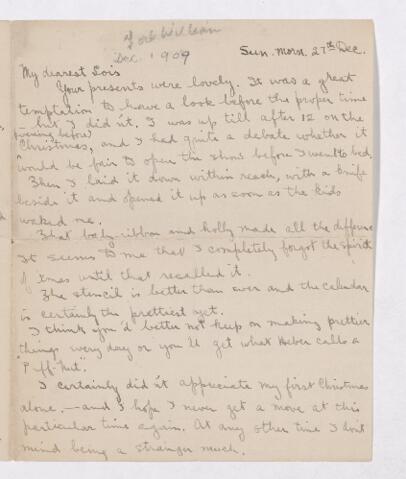 Fort William
Dec. 1909
Sun. Morn. 27th Dec.
My dearest Lois
Your presents were lovely. It was a great
temptation to have a look before the proper time
but I did n't. I was up till after 12 on the
evening before
Christmas, and I had quite a debate whether it
would be fair to open the show before I went to bed.
Then I laid it down within reach, with a knife
beside it and opened it up as soon as the kids
waked me.
That baby-ribbon and holly made all the difference
It seems to me that I completely forgot the spirit
of Xmas until that recalled it.
The stencil is better than ever and the calendar
is certainly the prettiest yet.
I think you'd better not keep on making prettier
things every day or you'll get what Heber calls a
"Puff-hut".
I certainly did n't appreciate my first Christmas
alone, — and I hope I never get a move at this
particular time again. At any other time I don't
mind being a stranger much.